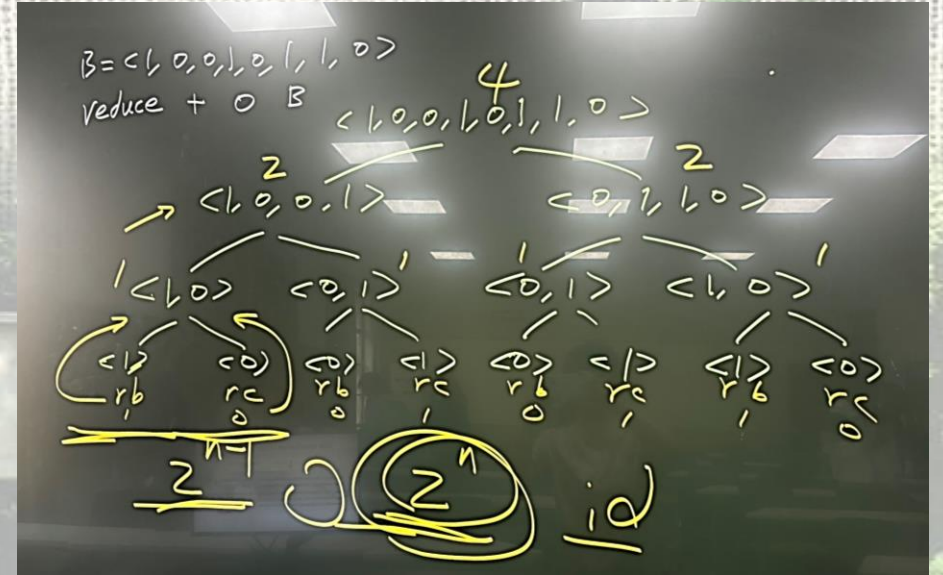 B=<1,0,0,1,0,1,1,0>
reduce + 0 B
4
<1,0,0,1,0,1,1,0>
2 2
<1,0,0,1> <0,1,1,0>
1 1 1 1
<1,0> <0,1> <0,1> <1,0>
<1> <0> <0> <1> <0> <1> <1> <0>
rb rc rb rc rb rc rb rc
1 0 0 1 0 1 1 0
2^n-1 2^n id